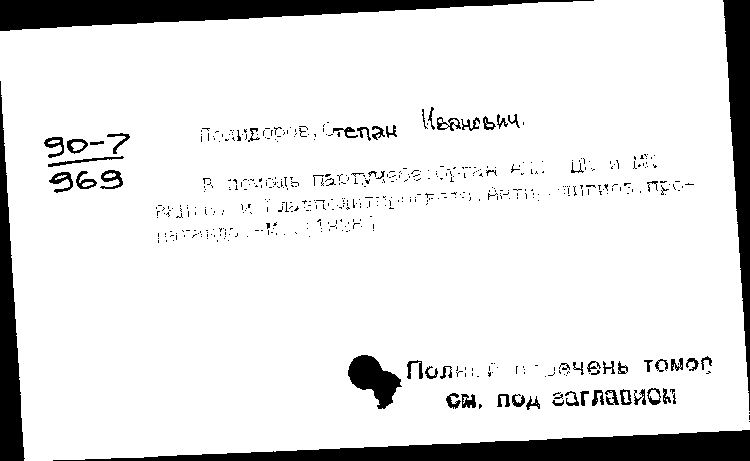 90-7
969
Полидоров, Степан Иванович.
В помощь партучебе: Орган АПО ЦК и МК
и Главполитпросвета. Антирелигиоз. про-
паганда.-М., [1928]
Полный перечень томов
см. под заглавием